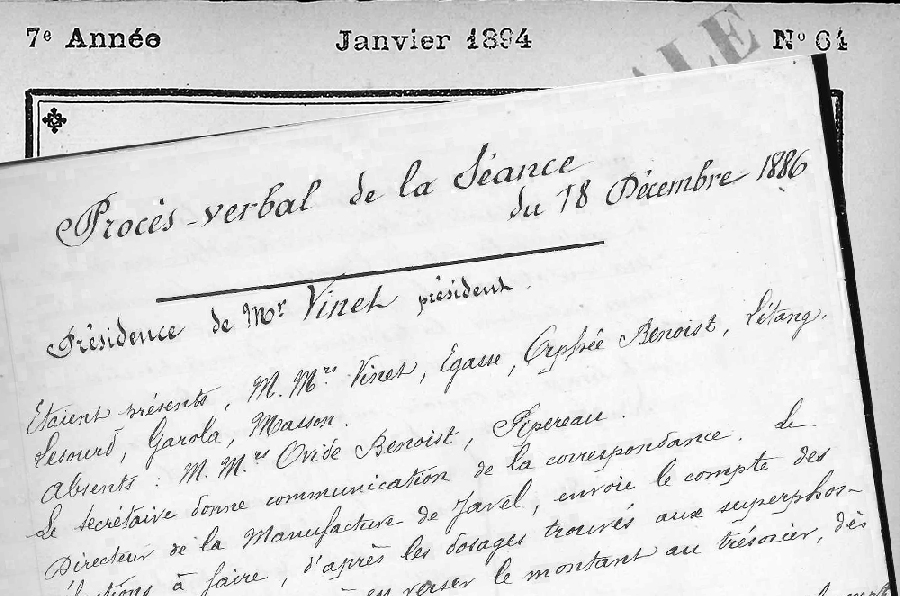 7e Année Janvier 1894 No 64
ALE
Procès-verbal de la Séance
du 18 Décembre 1886
Présidence de Mr Vinet président.
Etaient présents, M. Mrs Vinet, Egasse, Orphée Benoist, Létang.
Lesourd, Garola, Masson.
Absents : M. Mrs Ovide Benoist, Pépereau.
Le secrétaire donne communication de la correspondance. Le
Directeur de la Manufacture de Javel, envoie le compte des
à faire, d'après les dosages trouvés aux superphos-
en verser le montant au trésorier, dès